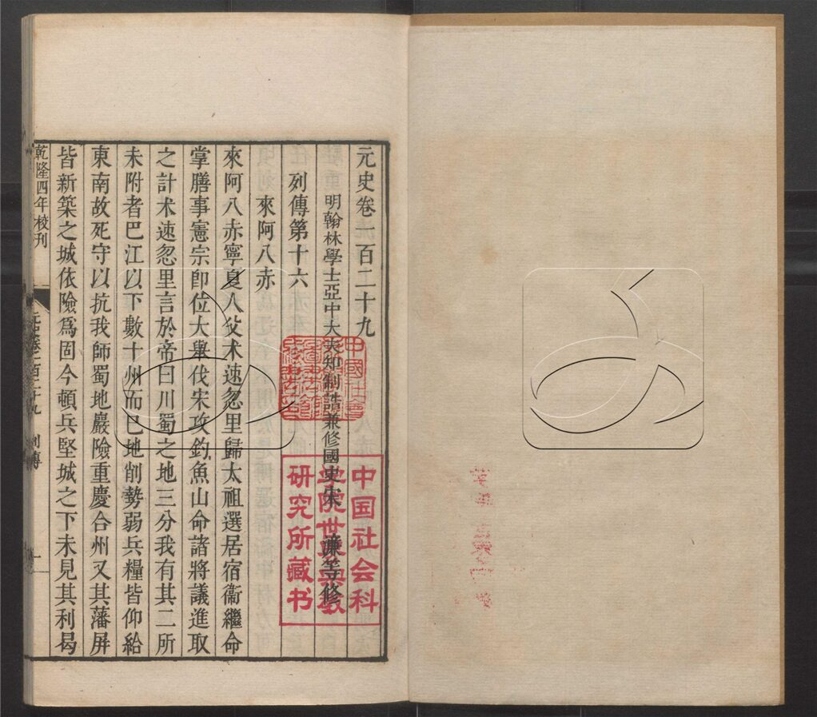 元史卷一百二十九
明翰林學士亞中大夫知制誥兼修國史宋濂等修
列傳第十六
來阿八赤
來阿八赤寧夏人父朮速忽里歸太祖選居宿衞繼命
掌膳事憲宗卽位大舉伐宋攻釣魚山命諸將議進取
之計朮速忽里言於帝曰川蜀之地三分我有其二所
未附者巴江以下數十州而已地削勢弱兵糧皆仰給
東南故死守以抗我師蜀地巖險重慶合州又其藩屏
皆新築之城依險爲固今頓兵堅城之下未見其利曷
乾隆四年校刊
元史卷一百二十九 列傳 一
中国社会科
学院世界宗教
研究所藏书